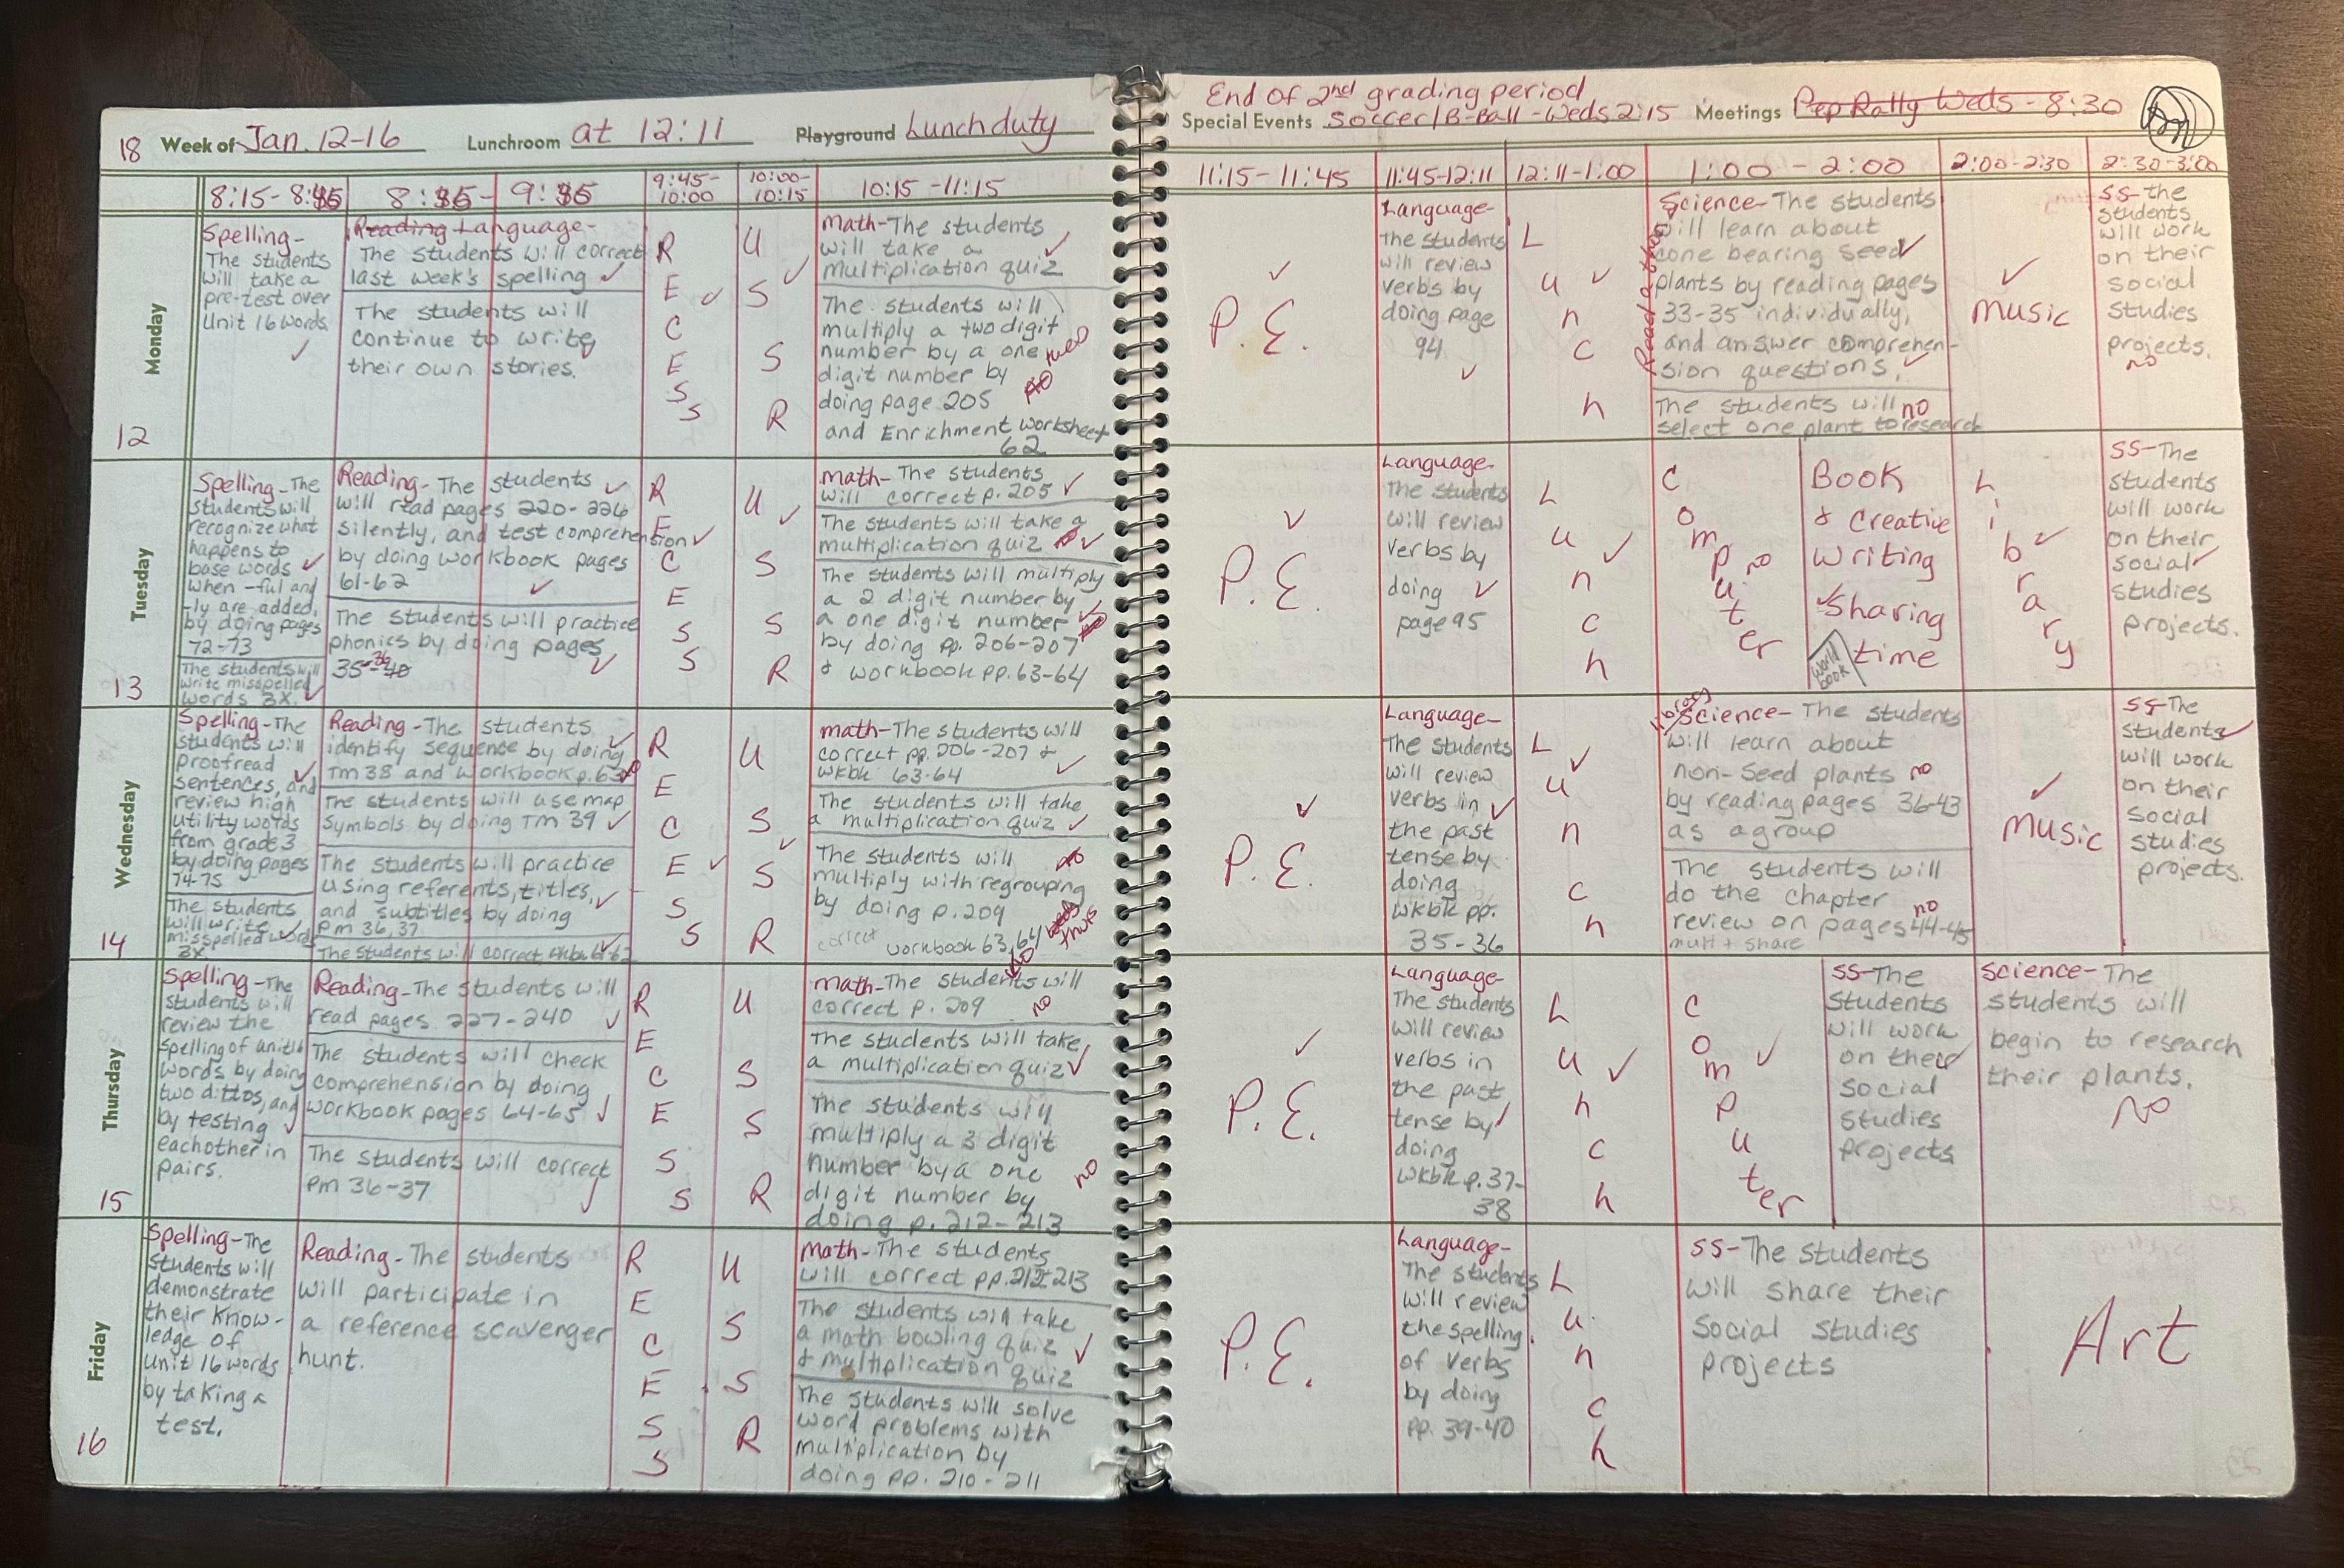 End of 2nd grading period
18 Week of Jan. 12-16 Lunchroom at 12:11 Playground Lunch duty
Special Events Soccer/B-Ball - Weds 2:15 Meetings Pep Rally Weds - 8:30
9:45-10:00
10:00-10:15
10:15-11:15
11:15-11:45
11:45-12:11
12:11-1:00
1:00-2:00
2:00-2:30
2:30-3:00
Monday
12
Spelling-
The students
will take a
pre-test over
Unit 16 words.
Reading Language-
The students will correct
last week's spelling
The students will
continue to write
their own stories.
RECESS
USSR
Math-The students
will take a
multiplication quiz
The students will
multiply a two digit
number by a one
digit number by
doing page 205
and Enrichment worksheet
62
P.E.
Language-
The students
will review
verbs by
doing page
94
Lunch
Science-The students
will learn about
cone bearing seed
plants by reading pages
33-35 individually,
and answer comprehen-
sion questions.
The students will no
select one plant to research
music
SS-the
students
will work
on their
social
studies
projects.
no
Tuesday
13
Spelling-The
students will
recognize what
happens to
base words
when -ful and
-ly are added,
by doing pages
72-73
The students will
write misspelled
words 3x.
Reading-The students
will read pages 220-226
silently, and test comprehension
by doing workbook pages
61-62
The students will practice
phonics by doing pages
RECESS
USSR
Math-The students
will correct p. 205
The students will take a
multiplication quiz
The students will multiply
a 2 digit number by
a one digit number
by doing pp. 206-207
& workbook pp. 63-64
P.E.
Language-
The students
will review
verbs by
doing
page 95
Lunch
Computer
no
Book
& Creative
Writing
Sharing
time
World
book
Library
SS-The
students
will work
on their
social
studies
projects.
Wednesday
14
Spelling-The
students will
proofread
sentences, and
review high
utility words
from grade 3
by doing pages
74-75
The students
will write
misspelled words
3x
Reading-The students
identify sequence by doing
Tm 38 and workbook p. 63
The students will use map
symbols by doing Tm 39
The students will practice
using referents, titles,
and subtitles by doing
Pm 36, 37
The students will correct
RECESS
USSR
math-The students will
correct pp. 206-207 &
wkbk 63-64
The students will take
a multiplication quiz
The students will
multiply with regrouping
by doing p. 209
correct workbook 63, 64
thurs
P.E.
Language-
The students
will review
verbs in
the past
tense by
doing
wkbk pp.
35-36
Lunch
library
Science-The students
will learn about
non-seed plants no
by reading pages 36-43
as a group
The students will
do the chapter
review on pages 44-45
no
music
SS-The
students
will work
on their
social
studies
projects.
Thursday
15
Spelling-The
students will
review the
spelling of unit 16
words by doing
two dittos, and
by testing
eachother in
pairs.
Reading-The students will
read pages 227-240
The students will check
comprehension by doing
workbook pages 64-65
The students will correct
Pm 36-37
RECESS
USSR
math-The students will
correct p. 209 no
The students will take
a multiplication quiz
The students will
multiply a 3 digit
number by a one no
digit number by
doing p. 212-213
P.E.
Language-
The students
will review
verbs in
the past
tense by
doing
wkbk p. 37-
38
Lunch
Computer
SS-The
students
will work
on their
social
studies
projects
Science-The
students will
begin to research
their plants.
no
Friday
16
Spelling-The
students will
demonstrate
their know-
ledge of
unit 16 words
by taking a
test.
Reading-The students
will participate in
a reference scavenger
hunt.
RECESS
USSR
Math-The students
will correct pp. 212-213
The students will take
a math bowling quiz
& multiplication quiz
The students will solve
word problems with
multiplication by
doing pp. 210-211
P.E.
Language-
The students
will review
the spelling
of verbs
by doing
pp. 39-40
Lunch
SS-The students
will share their
Social Studies
projects
Art